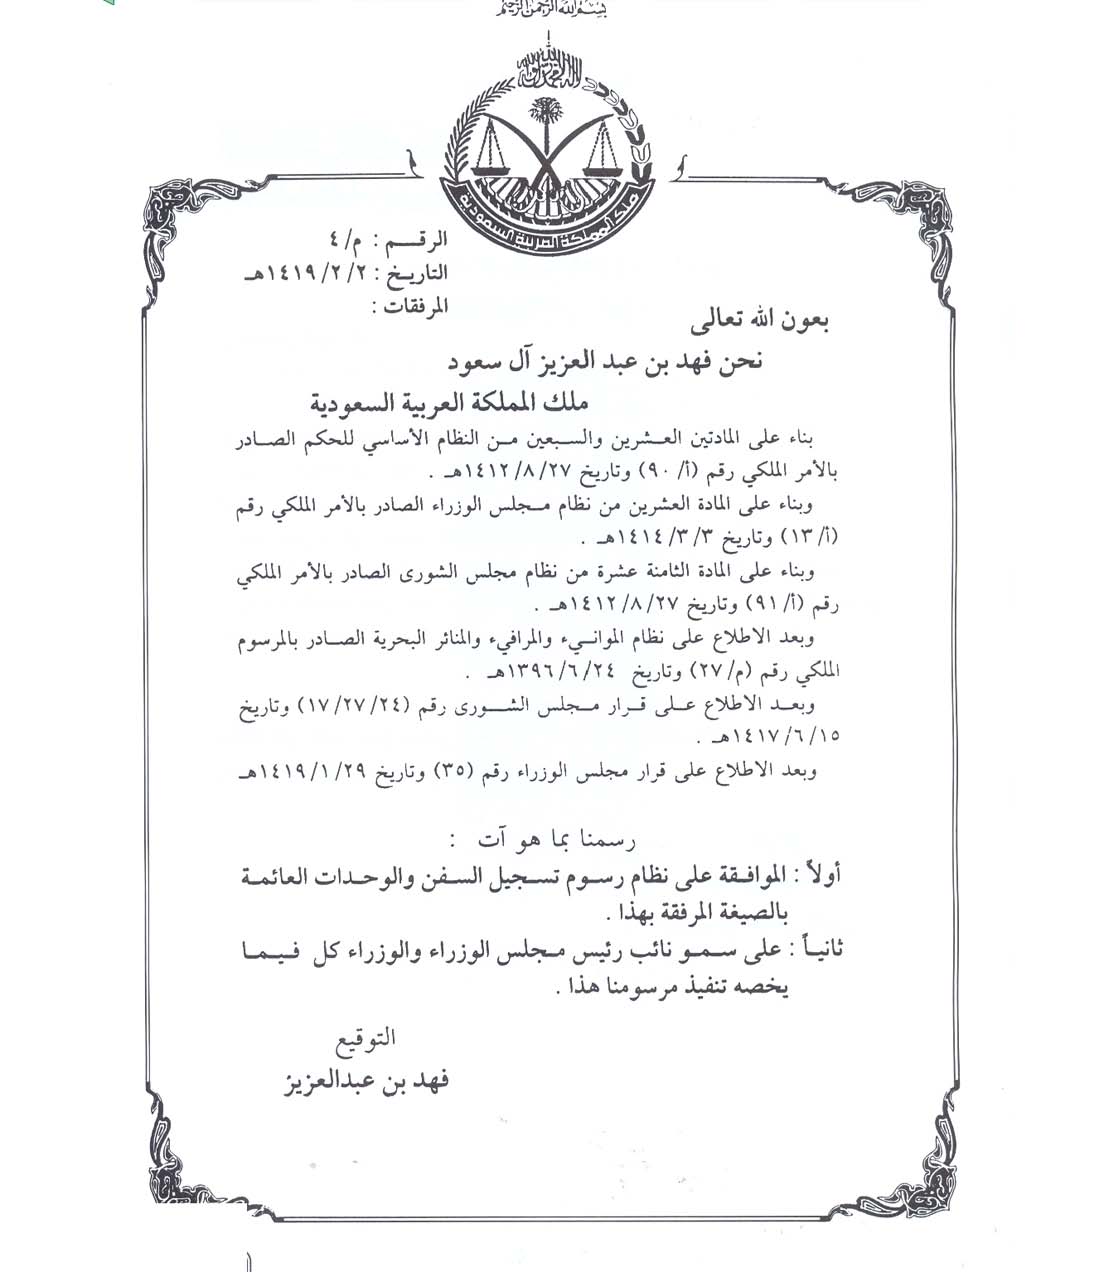 بسم الله الرحمن الرحيم
لا إله إلا الله محمد رسول الله
ملك المملكة العربية السعودية
الرقـــم : م/ ٤
التاريـخ : ٢ /٢ /١٤١٩هـ
المرفقات :
بعون الله تعالى
نحن فهد بن عبد العزيز آل سعود
ملك المملكة العربية السعودية
بناء على المادتين العـشرين والسـبعين مـن النظام الأساسي للحكم الصـادر
بالأمر الملكي رقم (أ/ ٩٠) وتاريخ ٢٧/ ٨/ ١٤١٢هـ .
وبناء على المادة العشرين من نظام مـجلس الوزراء الصادر بالأمر الملكي رقم
(أ/ ١٣) وتاريخ ٣/ ٣/ ١٤١٤هـ .
وبناء على المادة الثامنة عشرة من نظام مجلس الشورى الصادر بالأمر الملكي
رقم (أ/ ٩١) وتاريخ ٢٧/ ٨/ ١٤١٢هـ .
وبعد الاطلاع على نظام الموانـيء والمرافيء والمنائر البحرية الصـادر بالمرسوم
الملكي رقم (م/ ٢٧) وتاريخ ٢٤/ ٦/ ١٣٩٦هـ .
وبعـد الاطلاع عـلـى قـرار مـجلس الشـورى رقم (٢٤/ ٢٧/ ١٧) وتاريخ
١٥/ ٦/ ١٤١٧هـ .
وبعد الاطلاع على قرار مجلس الوزراء رقم (٣٥) وتاريخ ٢٩/ ١/ ١٤١٩هـ
رسمنا بما هو آت :
أولاً : الموافـقة على نظام رسـوم تسـجيل السـفن والوحـدات العائمة
بالصيغة المرفقة بهذا .
ثانيـاً : على سـمـو نائب رئيس مـجلس الوزراء والوزراء كل فـيمـا
يخصه تنفيذ مرسومنا هذا .
التوقيع
فهد بن عبدالعزيز